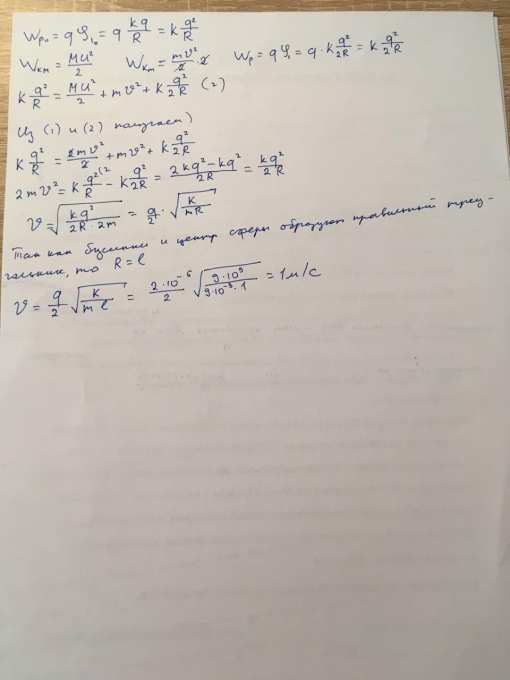 Wp₀ = qφ₁₀ = q kq/R = k q²/R
Wкм = Mu²/2   Wкm = mv²/2 · 2   Wp = qφ₁ = q · k q²/2R = k q²/2R
k q²/R = Mu²/2 + mv² + k q²/2R (2)
Из (1) и (2) получаем)
k q²/R = 2mv²/2 + mv² + k q²/2R
2mv² = k q²/R − k q²/2R = (2kq² − kq²)/2R = kq²/2R
v = √(kq²/(2R · 2m)) = q/2 · √(k/mR)
Так как бусинки и центр сферы образуют правильный треу-
гольник, то R = l
v = q/2 √(k/m l) = 2·10⁻⁶/2 √(9·10⁹/(9·10⁻³·1)) = 1 м/с